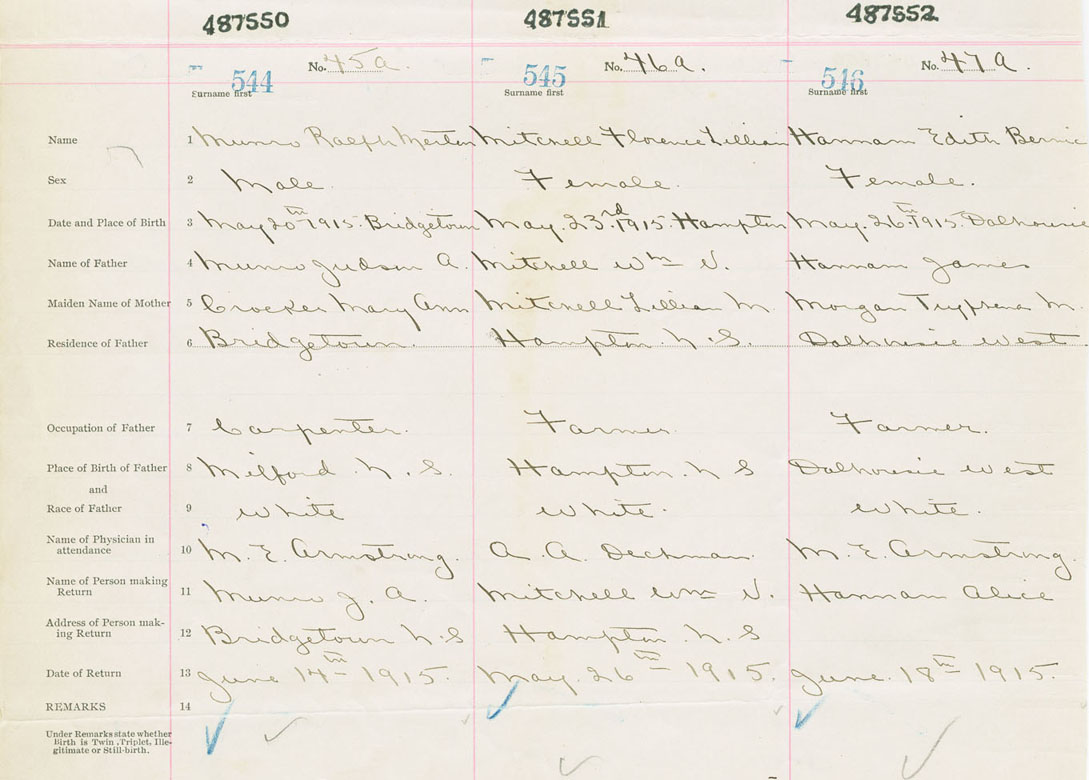 487550 487551 487552
No. 45a. No. 46a. No. 47a.
544 545 546
Surname first Surname first Surname first
Name 1 Munro Ralph Merton Mitchell Florence Lillian Hannam Edith Bernic
Sex 2 Male. Female. Female.
Date and Place of Birth 3 May 20th 1915. Bridgetown May. 23rd. 1915. Hampton May. 26th. 1915. Dalhousie
Name of Father 4 Munro Judson A. Mitchell Wm V. Hannam James
Maiden Name of Mother 5 Crocker Mary Ann Mitchell Lillian M. Morgan Tryphena M.
Residence of Father 6 Bridgetown. Hampton. N.S. Dalhousie West.
Occupation of Father 7 Carpenter. Farmer. Farmer.
Place of Birth of Father 8 Milford. N.S. Hampton. N S Dalhousie West
and
Race of Father 9 White White. White.
Name of Physician in
attendance 10 M. E. Armstrong. A. A. Deckman. M. E. Armstrong.
Name of Person making
Return 11 Munro J. A. Mitchell Wm V. Hannam Alice
Address of Person mak-
ing Return 12 Bridgetown N.S Hampton. N.S
Date of Return 13 June 14th 1915. May. 26th 1915. June. 18th 1915.
REMARKS 14
Under Remarks state whether
Birth is Twin, Triplet, Ille-
gitimate or Still-birth.